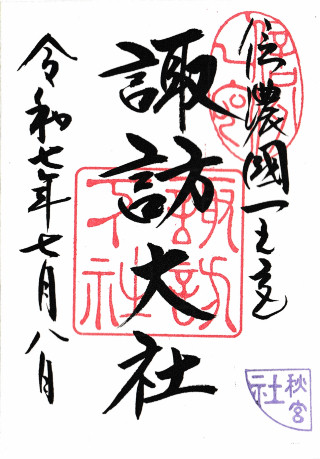 信濃國一之宮
諏訪大社
令和七年七月八日
諏訪大社
秋宮
社